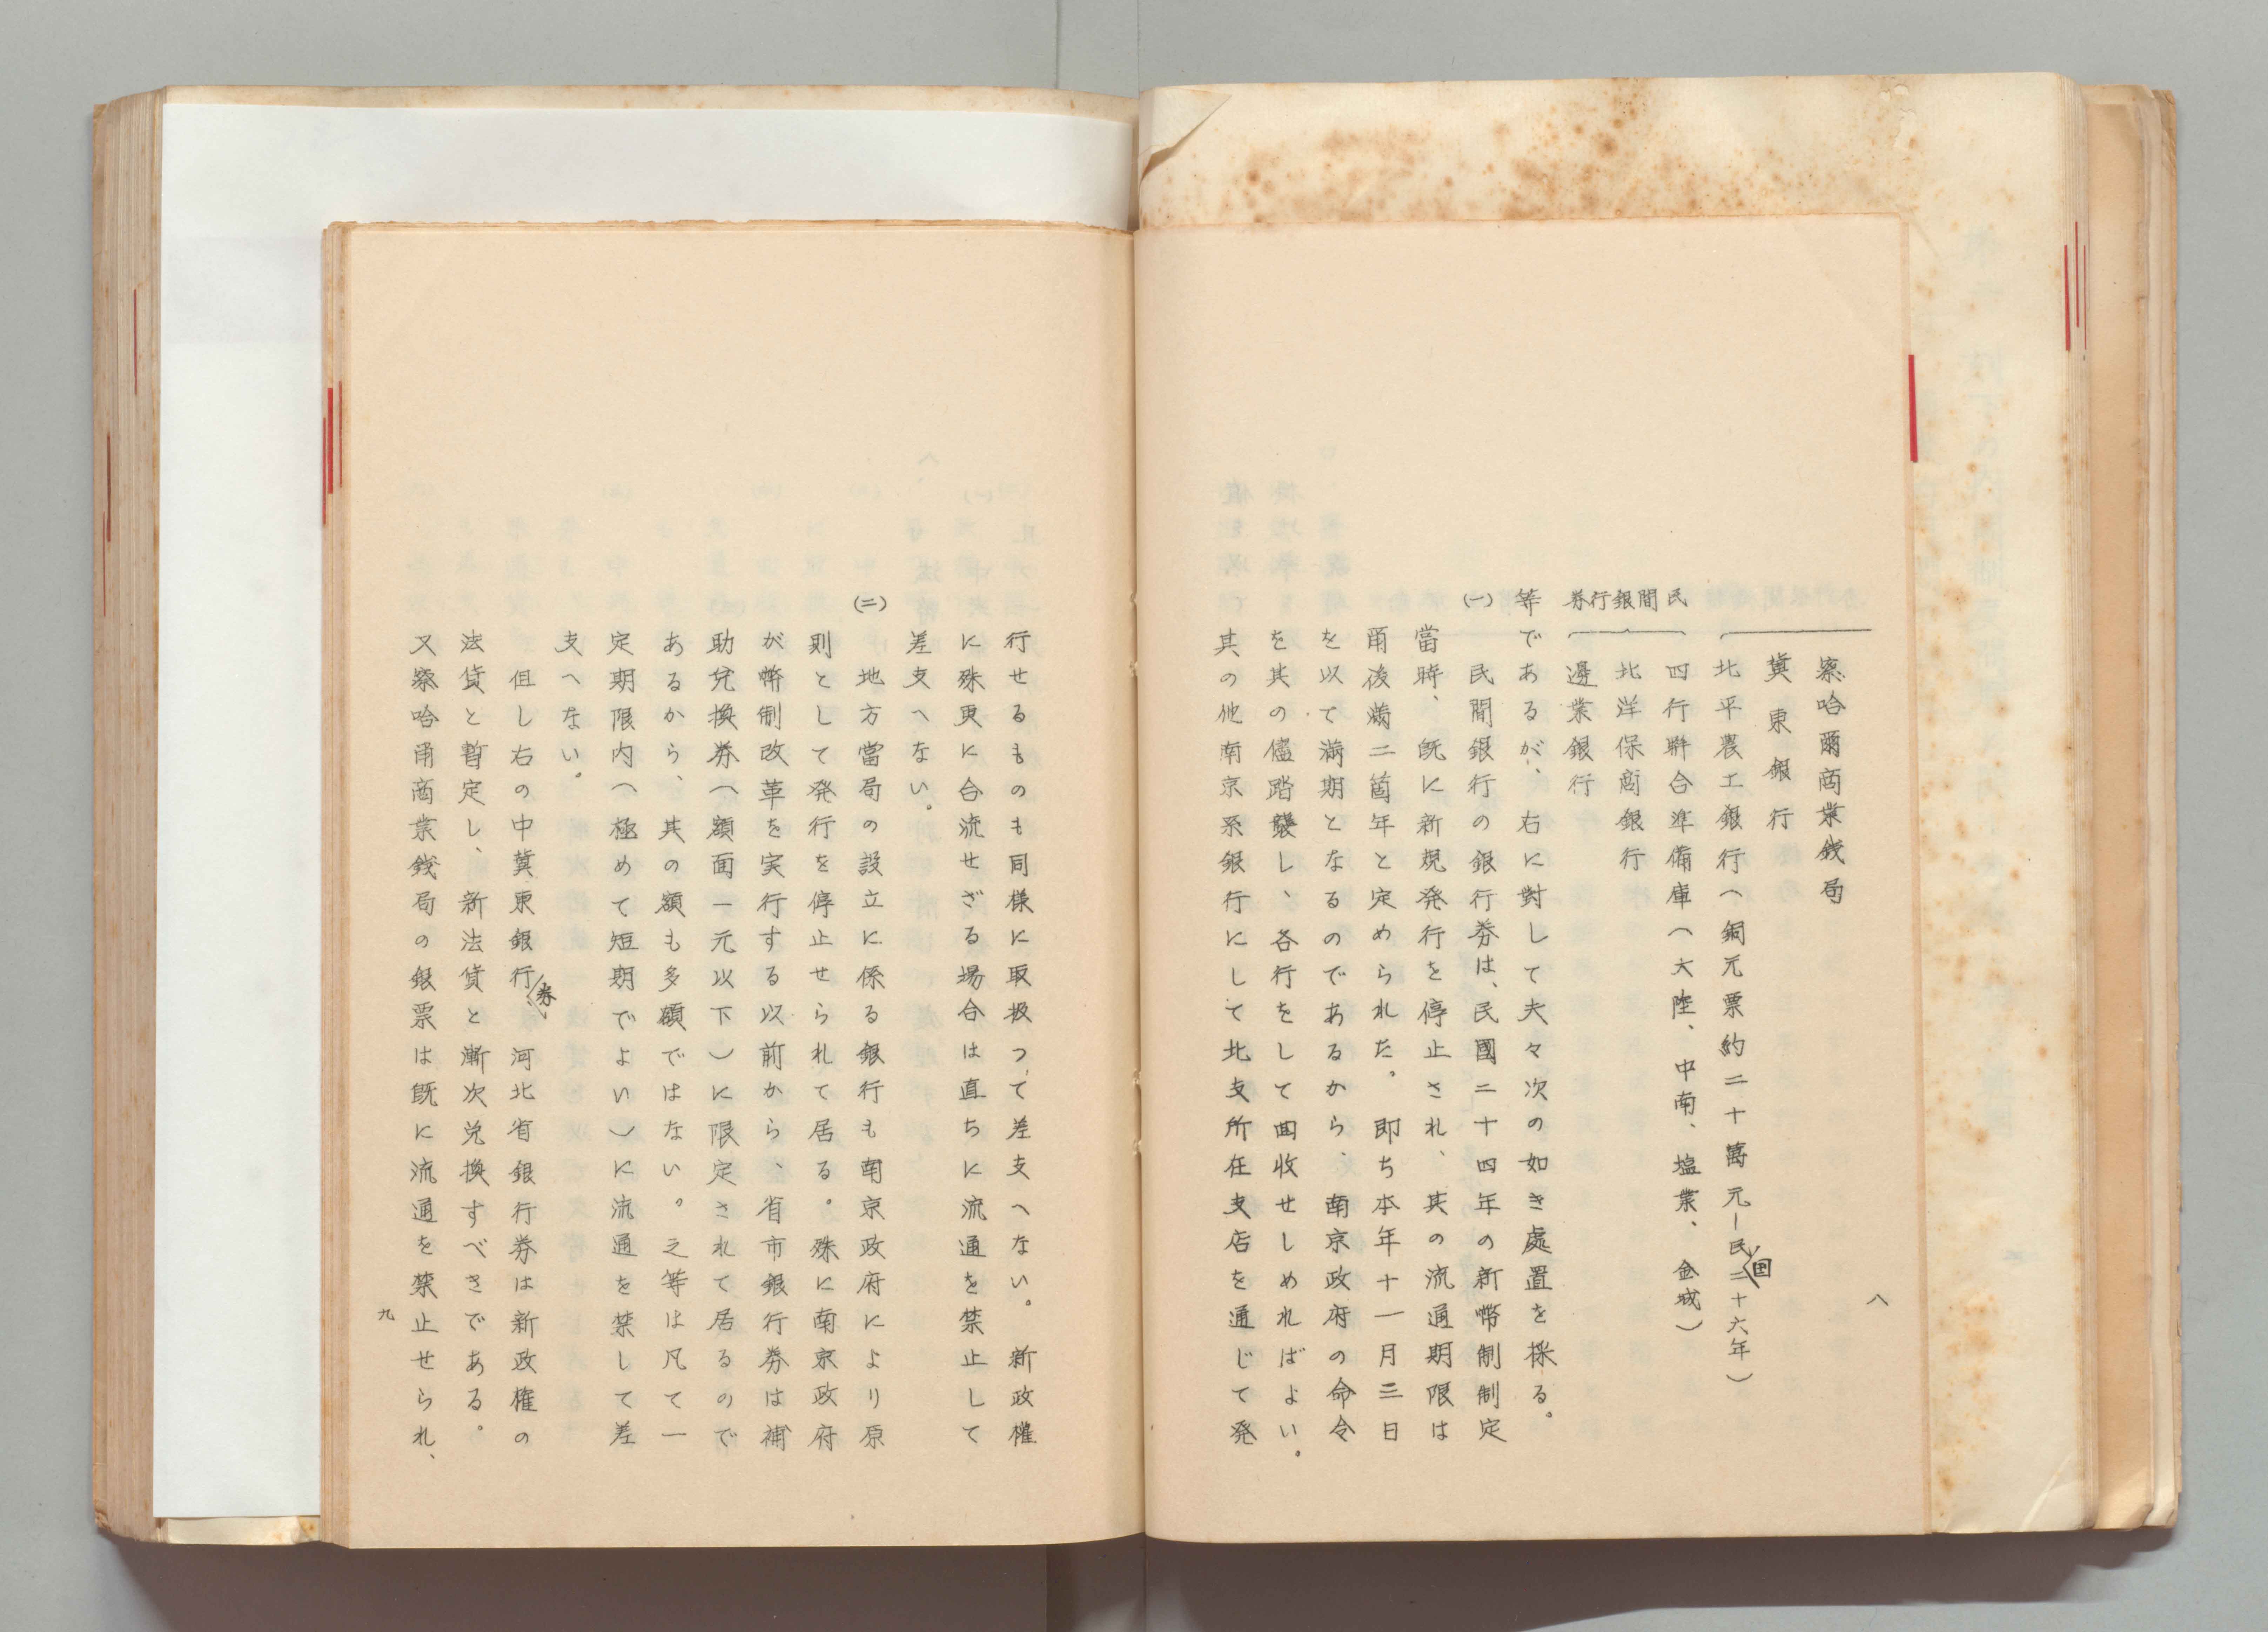 察哈爾商業銭局
冀東銀行
北平農工銀行(銅元票約二十萬元―民国二十六年)
民間銀行券
四行聯合準備庫(大陸、中南、塩業、金城)
北洋保商銀行
邊業銀行
等であるが、右に對して夫々次の如き處置を採る。
(一)民間銀行の銀行券は、民國二十四年の新幣制制定
當時、既に新規発行を停止され、其の流通期限は
爾後満二箇年と定められた。即ち本年十一月三日
を以て満期となるのであるから、南京政府の命令
を其の儘踏襲し、各行をして回収せしめればよい。
其の他南京系銀行にして北支所在支店を通じて発
八
行せるものも同様に取扱つて差支へない。新政權
に殊更に合流せざる場合は直ちに流通を禁止して
差支へない。
(二)地方當局の設立に係る銀行も南京政府により原
則として発行を停止せられて居る。殊に南京政府
が幣制改革を実行する以前から、省市銀行券は補
助兌換券(額面一元以下)に限定されて居るので
あるから、其の額も多額ではない。之等は凡て一
定期限内(極めて短期でよい)に流通を禁して差
支へない。
但し右の中冀東銀行券、河北省銀行券は新政權の
法貨と暫定し、新法貨と漸次兌換すべきである。
又察哈甫商業銭局の銀票は既に流通を禁止せられ、
九